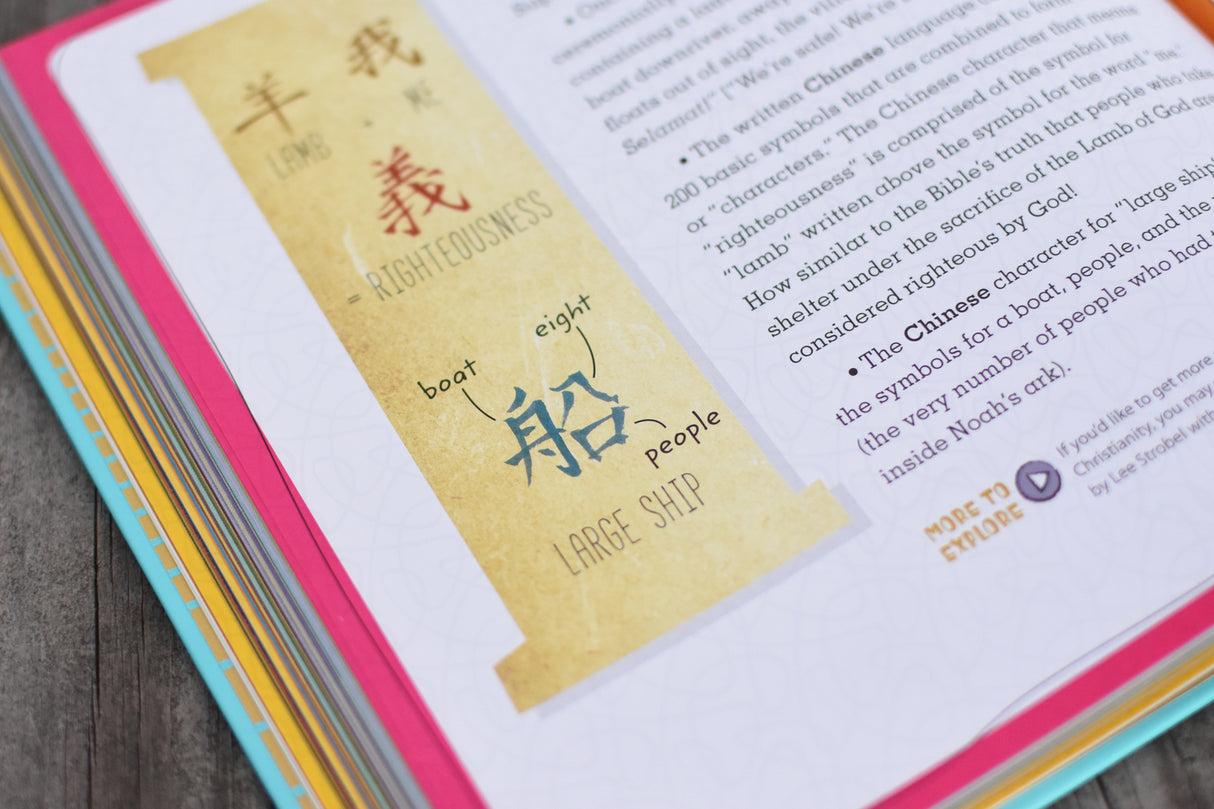 我
羊
ME
LAMB
義
= RIGHTEOUSNESS
eight
boat
船
people
LARGE SHIP
containing a
boat downriver, away
floats out of sight, the
Selamat!" ["We're safe! We're
• The written Chinese language
200 basic symbols that are combined to form
or "characters." The Chinese character that means
"righteousness" is comprised of the symbol for
"lamb" written above the symbol for the word "me."
How similar to the Bible's truth that people who take
shelter under the sacrifice of the Lamb of God are
considered righteous by God!
• The Chinese character for "large ship"
the symbols for a boat, people, and the
(the very number of people who had
inside Noah's ark).
MORE TO
EXPLORE
If you'd like to get more
Christianity, you may
by Lee Strobel with